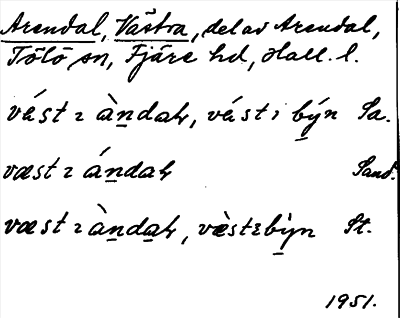 Arendal, Västra, del av Arendal,
Tölö sn, Fjäre hd, Hall. l.
vást ɿ àndaɬ, vásti býn Sa.
væst ɿ ándaɬ Sand.
væst ɿ àndaɬ, vèstɛbìyn St.
1951.